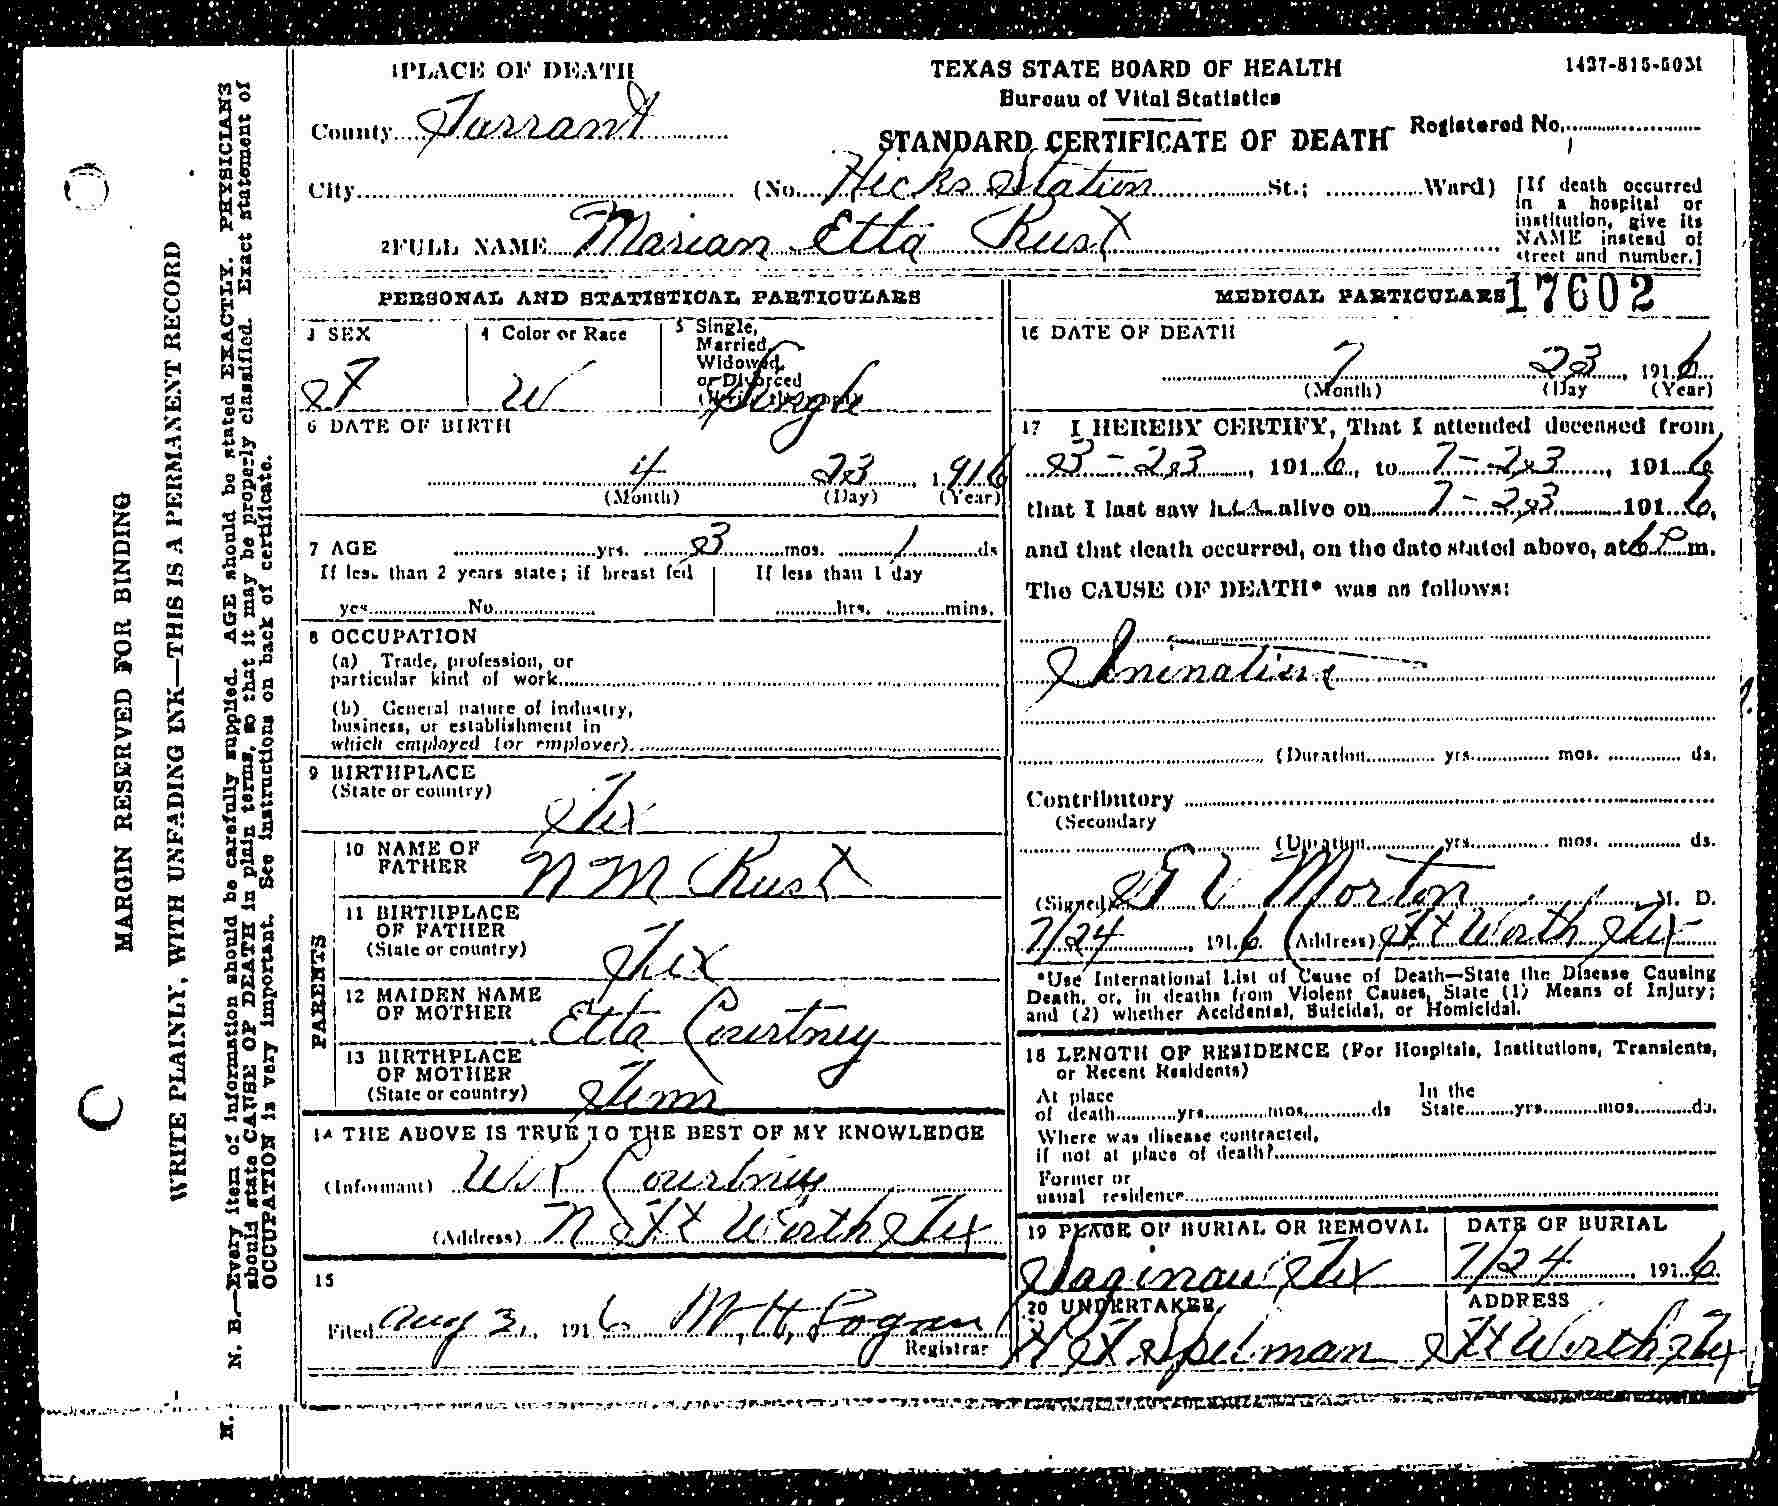 1 PLACE OF DEATH
TEXAS STATE BOARD OF HEALTH
1437-815-50M
Bureau of Vital Statistics
County Tarrant
STANDARD CERTIFICATE OF DEATH
Registered No.
City (No. Hicks Station St.; Ward)
[If death occurred
in a hospital or
institution, give its
NAME instead of
street and number.]
2 FULL NAME Marian Etta Rust
PERSONAL AND STATISTICAL PARTICULARS
3 SEX
F
4 Color or Race
W
5 Single,
Married,
Widowed,
or Divorced
Single
6 DATE OF BIRTH
4 23, 1916
(Month) (Day) (Year)
7 AGE yrs. 3 mos. 1 ds
If less than 2 years state; if breast fed
yes No
If less than 1 day
hrs. mins.
8 OCCUPATION
(a) Trade, profession, or
particular kind of work
(b) General nature of industry,
business, or establishment in
which employed (or employer)
9 BIRTHPLACE
(State or country)
Tex
PARENTS
10 NAME OF
FATHER
N M Rust
11 BIRTHPLACE
OF FATHER
(State or country)
Tex
12 MAIDEN NAME
OF MOTHER
Etta Courtney
13 BIRTHPLACE
OF MOTHER
(State or country)
Tenn
14 THE ABOVE IS TRUE TO THE BEST OF MY KNOWLEDGE
(Informant) W R Courtney
(Address) N Ft Worth Tex
15
Filed Aug 3, 1916 M. H. Logan
Registrar
MEDICAL PARTICULARS 17602
16 DATE OF DEATH
7 23, 1916
(Month) (Day (Year)
17 I HEREBY CERTIFY, That I attended deceased from
3-23, 1916, to 7-23, 1916
that I last saw her alive on 7-23 1916,
and that death occurred, on the date stated above, at 6 P m.
The CAUSE OF DEATH* was as follows:
(Duration yrs. mos. ds.
Contributory
(Secondary
(Duration yrs. mos. ds.
(Signed) Morton M. D.
7/24, 1916 (Address) Ft Worth Tex
*Use International List of Cause of Death—State the Disease Causing
Death, or, in deaths from Violent Causes, State (1) Means of Injury;
and (2) whether Accidental, Suicidal, or Homicidal.
18 LENGTH OF RESIDENCE (For Hospitals, Institutions, Transients,
or Recent Residents)
At place
of death yrs. mos. ds
In the
State yrs. mos. ds.
Where was disease contracted,
if not at place of death?
Former or
usual residence
19 PLACE OF BURIAL OR REMOVAL
Saginaw Tex
DATE OF BURIAL
7/24, 1916
20 UNDERTAKER
Spelman
ADDRESS
Ft Worth Tex
MARGIN RESERVED FOR BINDING
WRITE PLAINLY, WITH UNFADING INK—THIS IS A PERMANENT RECORD
N. B.—Every item of information should be carefully supplied. AGE should be stated EXACTLY. PHYSICIANS
should state CAUSE OF DEATH in plain terms, so that it may be properly classified. Exact statement of
OCCUPATION is very important. See instructions on back of certificate.
N.